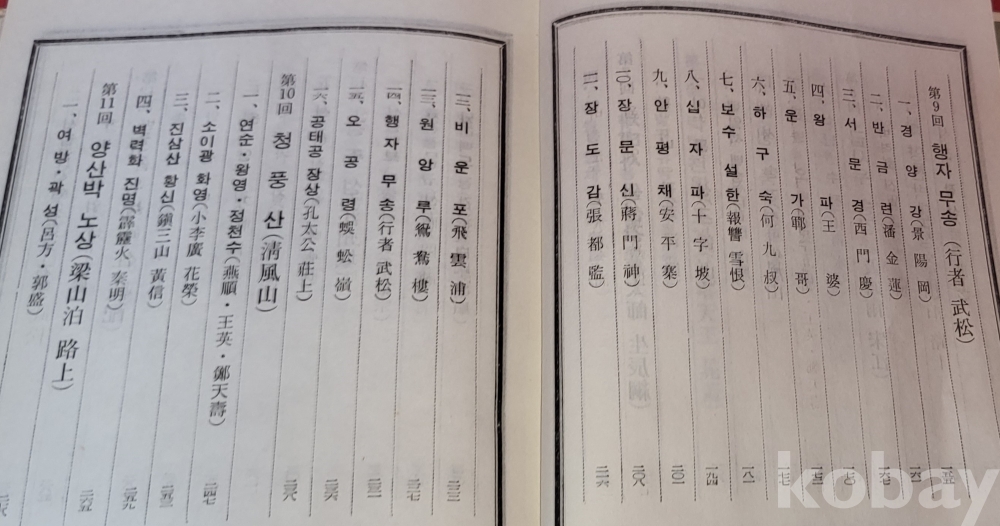 第9回 행자 무송 (行者 武松)
一、경양강(景陽岡)
二、반금련(潘金蓮)
三、서문경(西門慶)
四、왕파(王婆)
五、운가(鄆哥)
六、하구숙(何九叔)
七、보수 설한(報讐 雪恨)
八、십자파(十字坡)
九、안평채(安平寨)
一〇、장문신(蔣門神)
一一、장도감(張都監)
一二、비운포(飛雲浦)
一三、원앙루(鴛鴦樓)
一四、행자 무송(行者 武松)
一五、오공령(蜈蚣嶺)
一六、공태공 장상(孔太公 莊上)
第10回 청풍산(淸風山)
一、연순·왕영·정천수(燕順·王英·鄭天壽)
二、소이광 화영(小李廣 花榮)
三、진삼산 황신(鎭三山 黃信)
四、벽력화 진명(霹靂火 秦明)
第11回 양산박 노상(梁山泊 路上)
一、여방·곽성(呂方·郭盛)
kobay